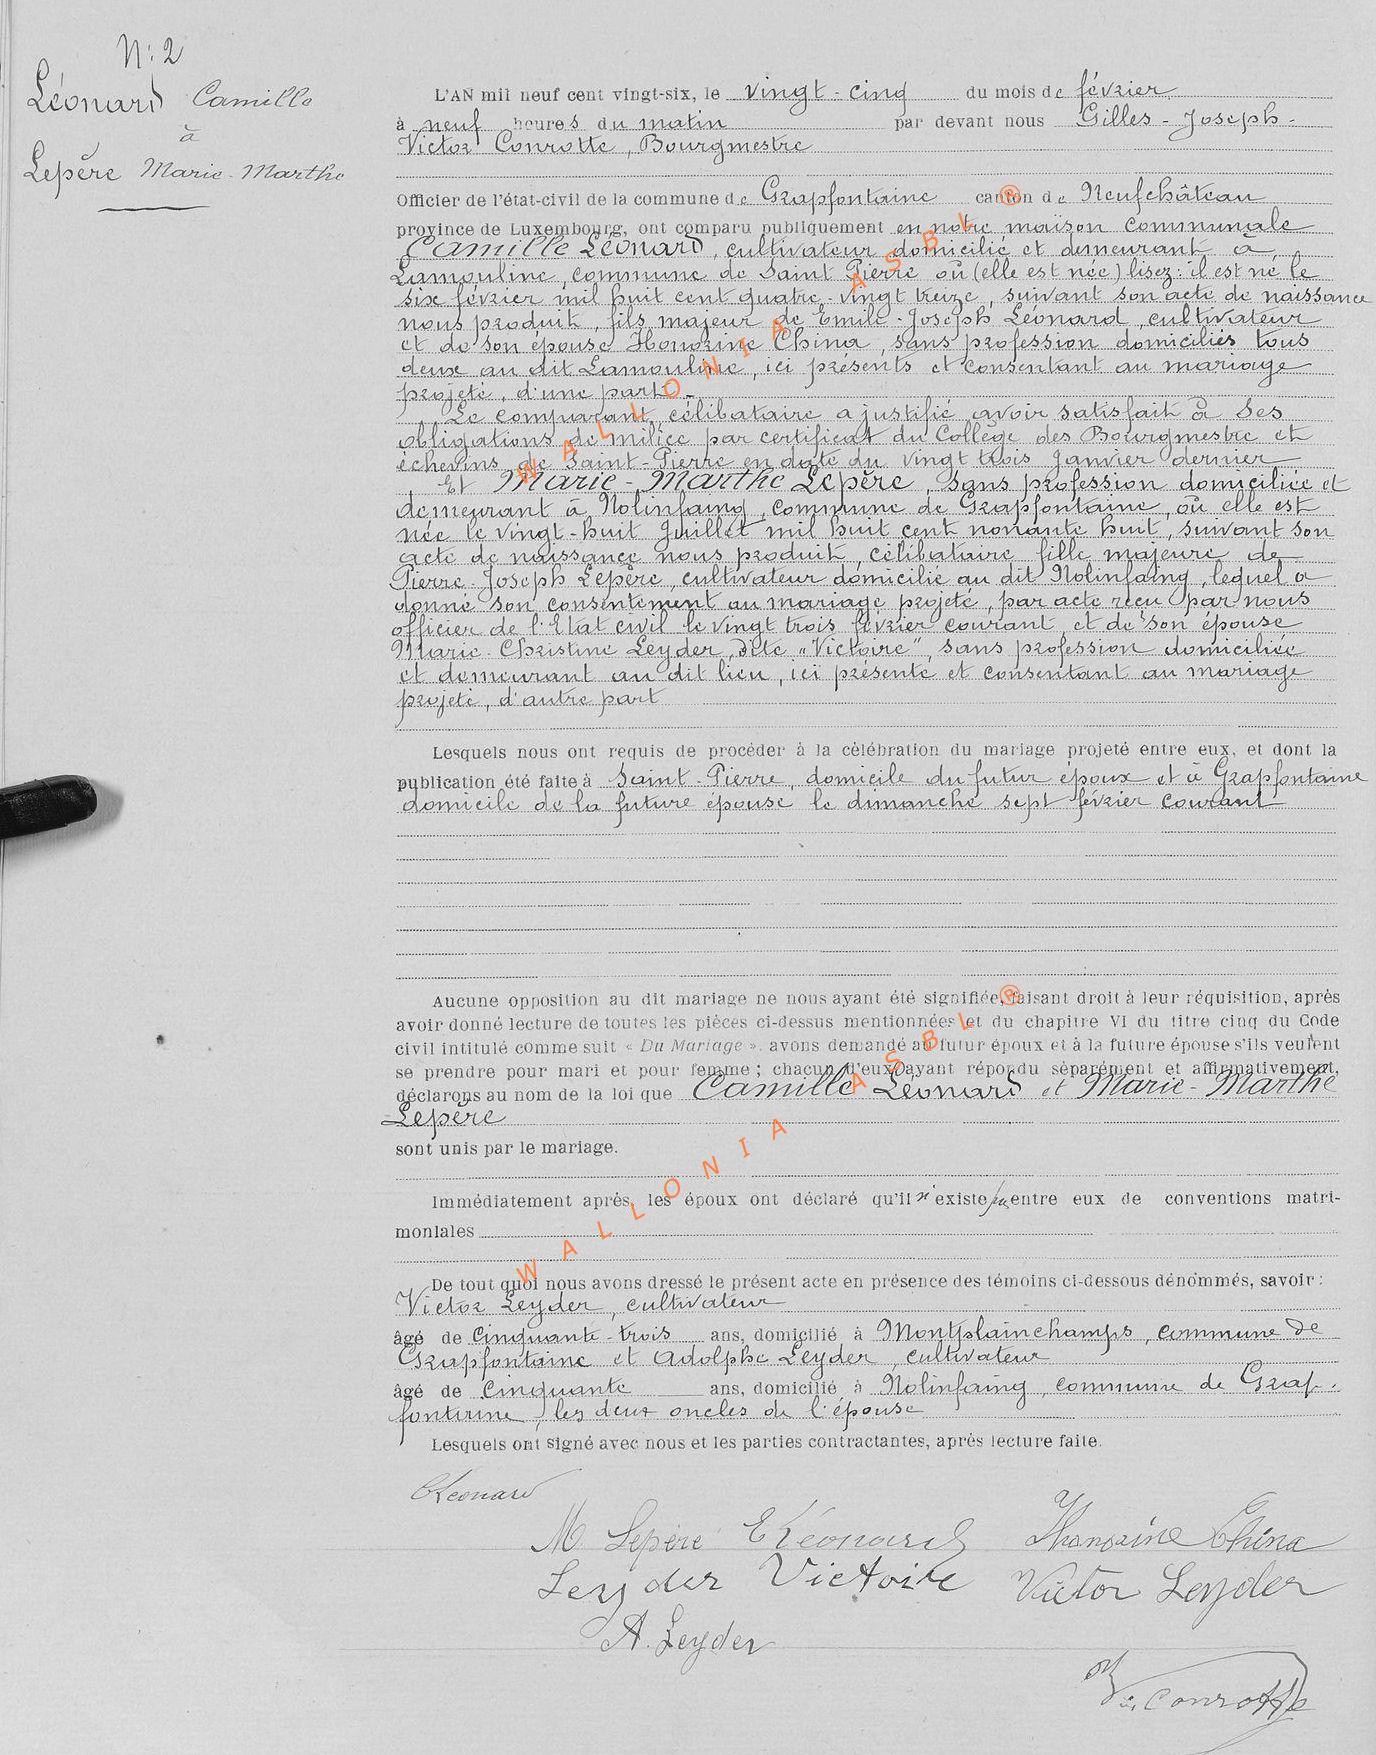 N: 2
Léonard Camille
à
Lepère Marie-Marthe
L'AN mil neuf cent vingt-six, le vingt-cinq du mois de février
à neuf heures du matin par devant nous Gilles-Joseph-
Victor Conrotte, Bourgmestre
Officier de l'état-civil de la commune de Grapfontaine canton de Neufchâteau
province de Luxembourg, ont comparu publiquement en notre maison communale
Camille Léonard, cultivateur domicilié et demeurant à
Lamouline, commune de Saint Pierre où (elle est née) lisez: il est né le
six février mil huit cent quatre-vingt treize, suivant son acte de naissance
nous produit, fils majeur de Emile-Joseph Léonard, cultivateur
et de son épouse Honorine China, sans profession domiciliés tous
deux au dit Lamouline, ici présents et consentant au mariage
projeté, d'une part.
Le comparant célibataire a justifié avoir satisfait à ses
obligations de milice par certificat du Collège des Bourgmestre et
échevins de Saint-Pierre en date du vingt trois janvier dernier
Et Marie-Marthe Lepère, sans profession domiciliée et
demeurant à Nolinfaing, commune de Grapfontaine, où elle est
née le vingt-huit Juillet mil huit cent nonante huit, suivant son
acte de naissance nous produit, célibataire fille majeure de
Pierre-Joseph Lepère, cultivateur domicilié au dit Nolinfaing, lequel a
donné son consentement au mariage projeté, par acte reçu par nous
officier de l'Etat civil le vingt trois février courant, et de son épouse
Marie-Christine Leyder, dite „Victoire", sans profession domiciliée
et demeurant au dit lieu, ici présente et consentant au mariage
projeté, d'autre part
Lesquels nous ont requis de procéder à la célébration du mariage projeté entre eux, et dont la
publication été faite à Saint-Pierre, domicile du futur époux et à Grapfontaine
domicile de la future épouse le dimanche sept février courant
Aucune opposition au dit mariage ne nous ayant été signifiée, faisant droit à leur réquisition, après
avoir donné lecture de toutes les pièces ci-dessus mentionnées et du chapitre VI du titre cinq du Code
civil intitulé comme suit « Du Mariage », avons demandé au futur époux et à la future épouse s'ils veulent
se prendre pour mari et pour femme ; chacun d'eux ayant répondu séparément et affirmativement,
déclarons au nom de la loi que Camille Léonard et Marie-Marthe
Lepère
sont unis par le mariage.
Immédiatement après, les époux ont déclaré qu'il n'existe pas entre eux de conventions matri-
moniales
De tout quoi nous avons dressé le présent acte en présence des témoins ci-dessous dénommés, savoir :
Victor Leyder, cultivateur
âgé de cinquante-trois ans, domicilié à Montplainchamps, commune de
Grapfontaine et Adolphe Leyder, cultivateur
âgé de cinquante ans, domicilié à Nolinfaing, commune de Grap-
fontaine, les deux oncles de l'épouse
Lesquels ont signé avec nous et les parties contractantes, après lecture faite.
C Léonard
M Lepère E Léonard Honorine China
Leyder Victoire Victor Leyder
A. Leyder
Vic Conrotte
WALLONIA ASBL ®
WALLONIA ASBL ®